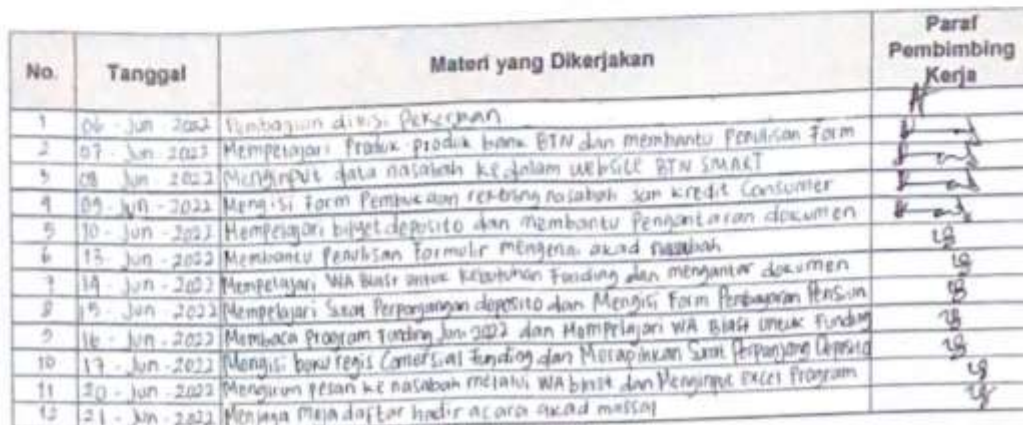 No. Tanggal Materi yang Dikerjakan Paraf Pembimbing Kerja
1 06 - Jun - 2022 Pembagian divisi Pekerjaan
2 07 - Jun - 2022 Mempelajari Produk-produk bank BTN dan membantu Penulisan Form
3 08 - Jun - 2022 Menginput data nasabah ke dalam website BTN SMART
4 09 - Jun - 2022 Mengisi Form Pembukaan rekening nasabah dan kredit Consumer
5 10 - Jun - 2022 Mempelajari bilyet deposito dan membantu Pengantaran documen
6 13 - Jun - 2022 Membantu Penulisan Formulir mengenai akad nasabah
7 14 - Jun - 2022 Mempelajari WA Blast untuk Kebutuhan Funding dan mengantar documen
8 15 - Jun - 2022 Mempelajari Surat Perpanjangan deposito dan Mengisi Form Pembayaran Pensiun
9 16 - Jun - 2022 Membaca Program Funding Juni 2022 dan Mempelajari WA Blast untuk Funding
10 17 - Jun - 2022 Mengisi buku regis Comersial Funding dan Merapihkan Surat Perpanjang Deposito
11 20 - Jun - 2022 Mengirim pesan ke nasabah melalui WA blast dan Menginput excel Program
12 21 - Jun - 2022 Menjaga Meja daftar hadir acara akad massal